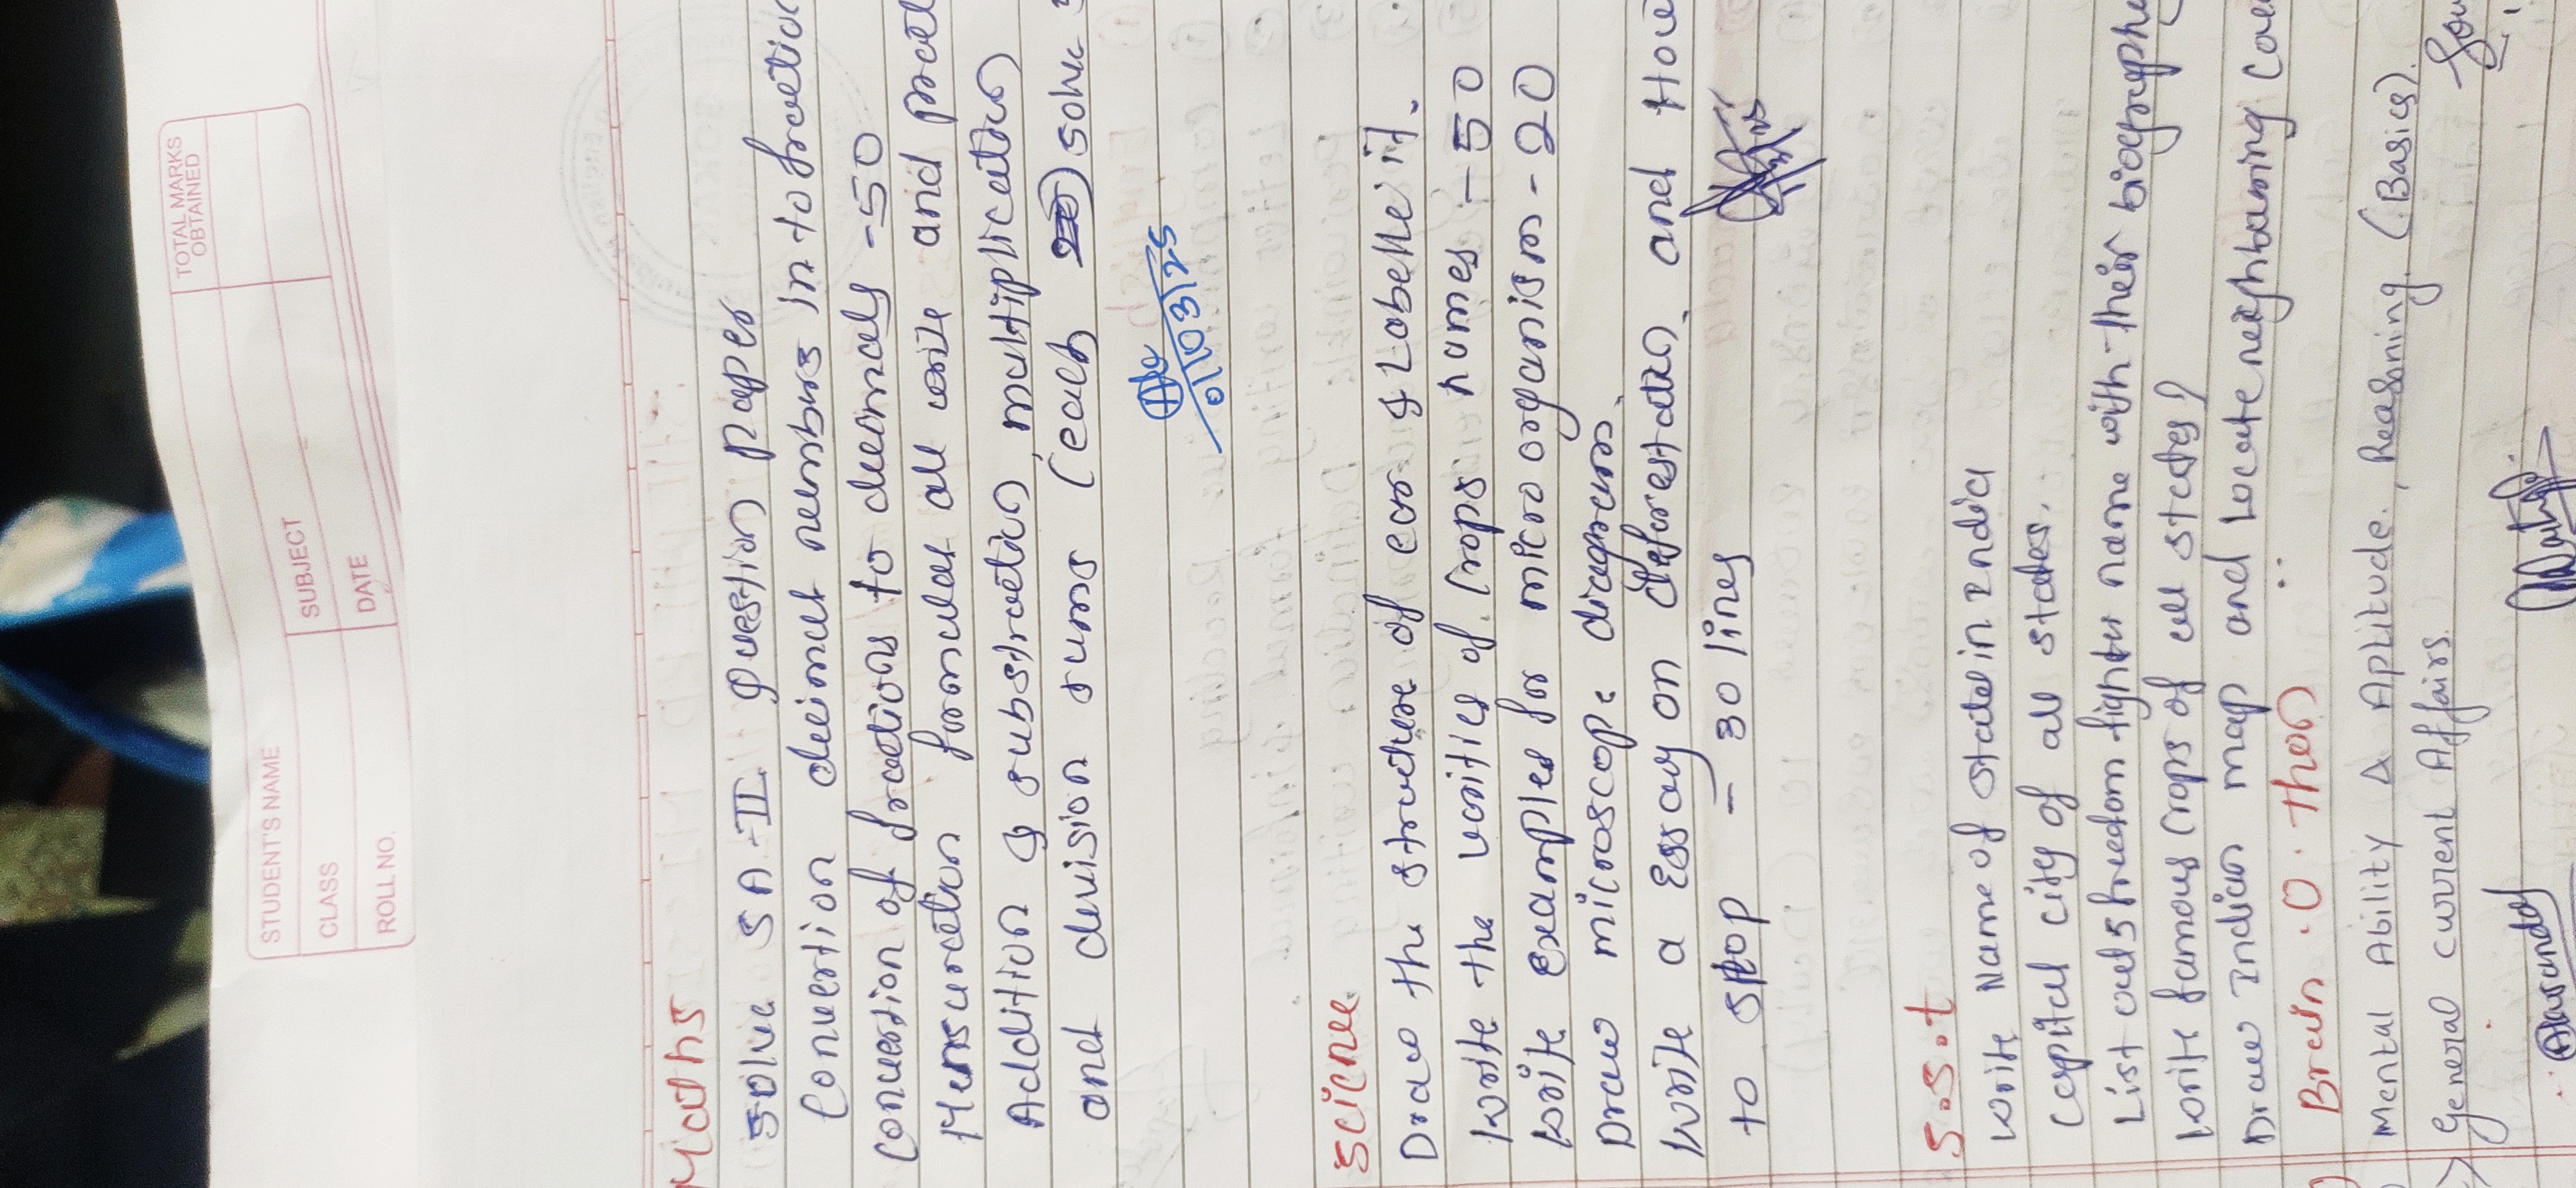 STUDENT'S NAME
CLASS
SUBJECT
ROLL NO.
DATE
TOTAL MARKS
OBTAINED
Maths
Solve SA-II question paper
Convertion decimal numburs in to fraction
Convertion of fractions to decimals -50
Mensuration formulas all write and
Addition & substraction, multiplication
and devision sums (each solve
01/03/25
Science
Draw the structure of ear & Labelle it.
Write the varities of Crops names - 50
Write Examples for micro organism - 20
Draw microscope diagram
Write a Essay on deforestation and How
to stop - 30 lines
S.S.t
Write Name of state in India
Capital city of all states.
List out 5 freedom fighter name with their biography
Write famous crops of all states?
Draw Indian map and locate neighbouring
Brain . O . then
Mental Ability & Aptitude, Reasoning. (Basics).
General current Affairs.